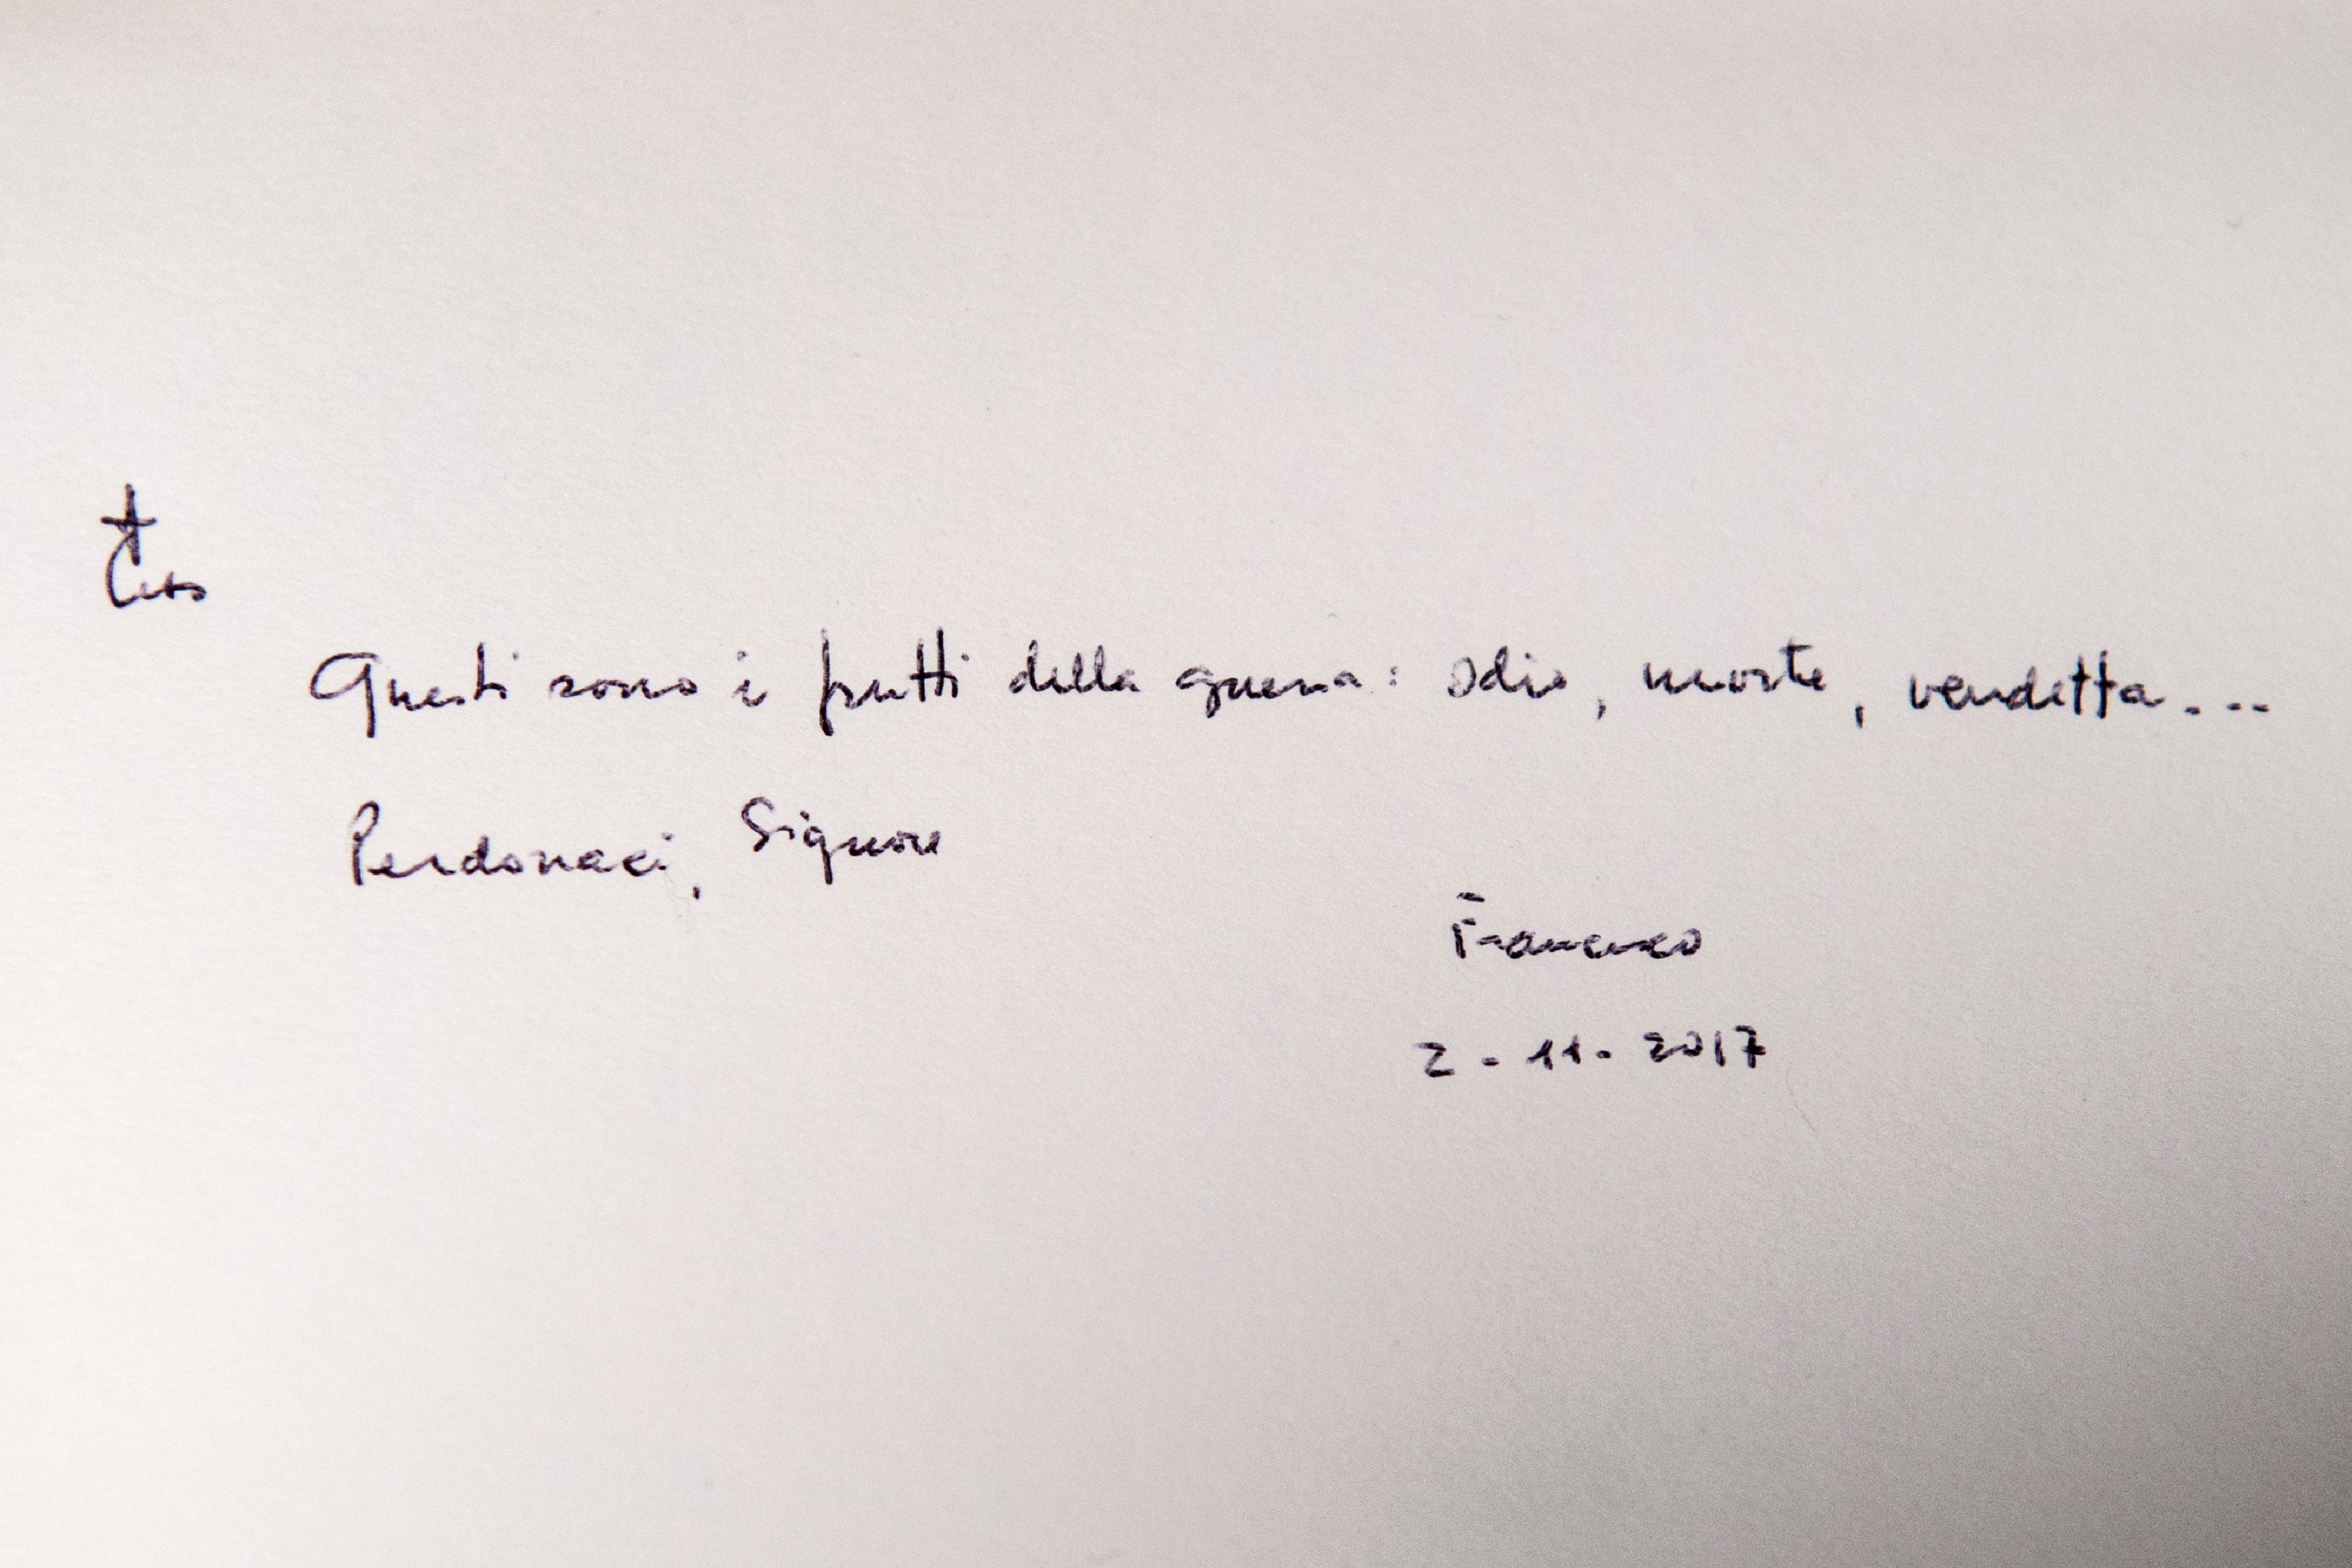 Questi sono i frutti della guerra: odio, morte, vendetta...
Perdonaci, Signore
Francesco
2-11-2017